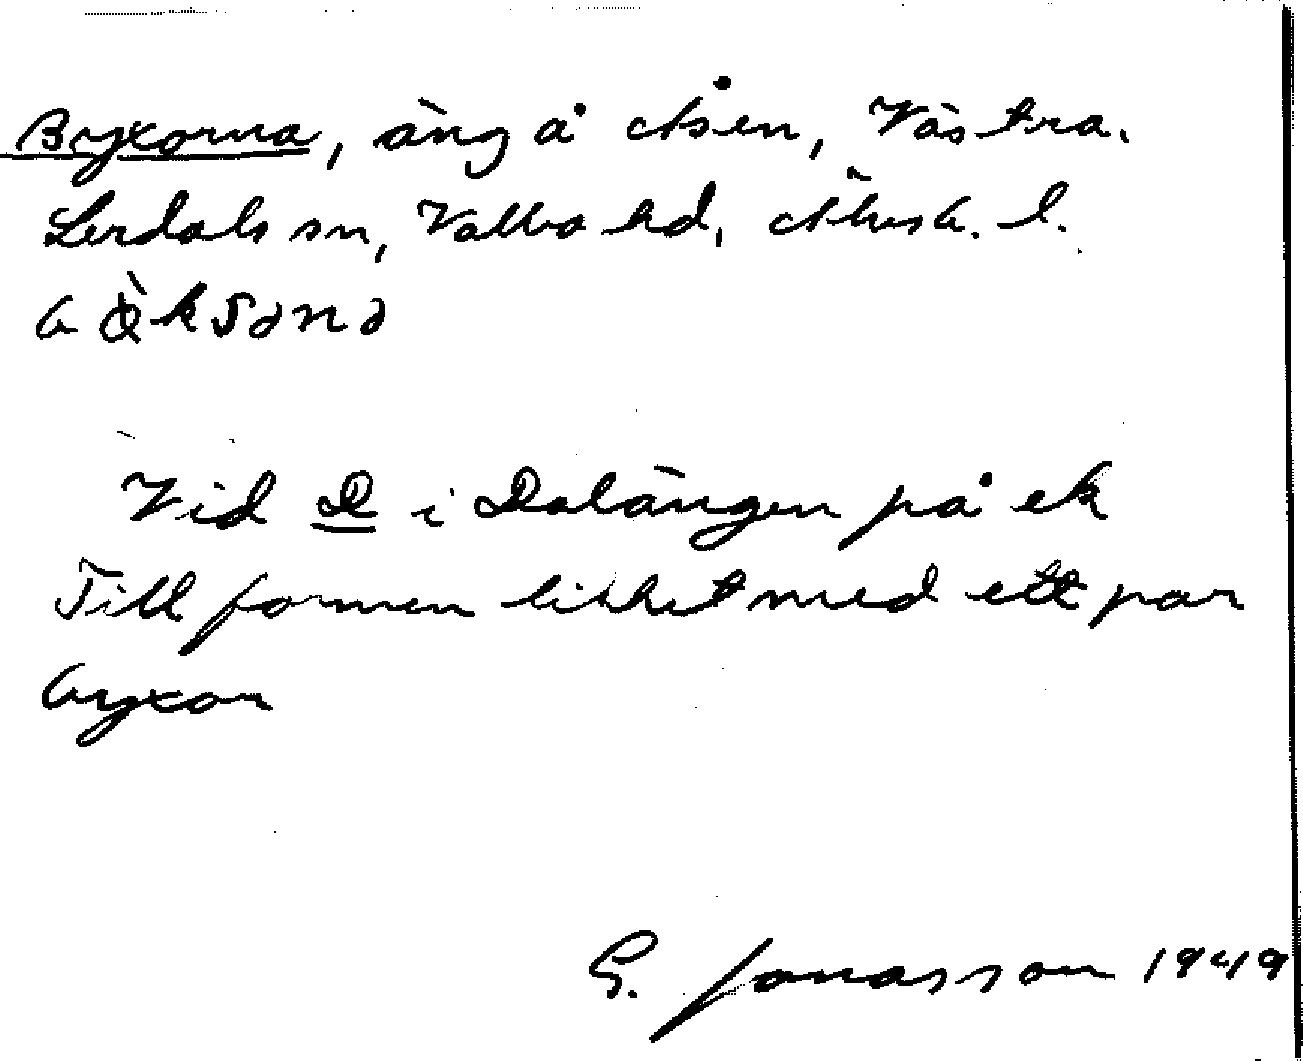 Byxorna, äng å Åsen, Västra.
Lerdals sn, Valbo hd, Älvsb. l.
b ö̀ksənə
Vid D i Dalängen på ek
Till formen likhet med ett par
byxor
G. Jonasson 1949